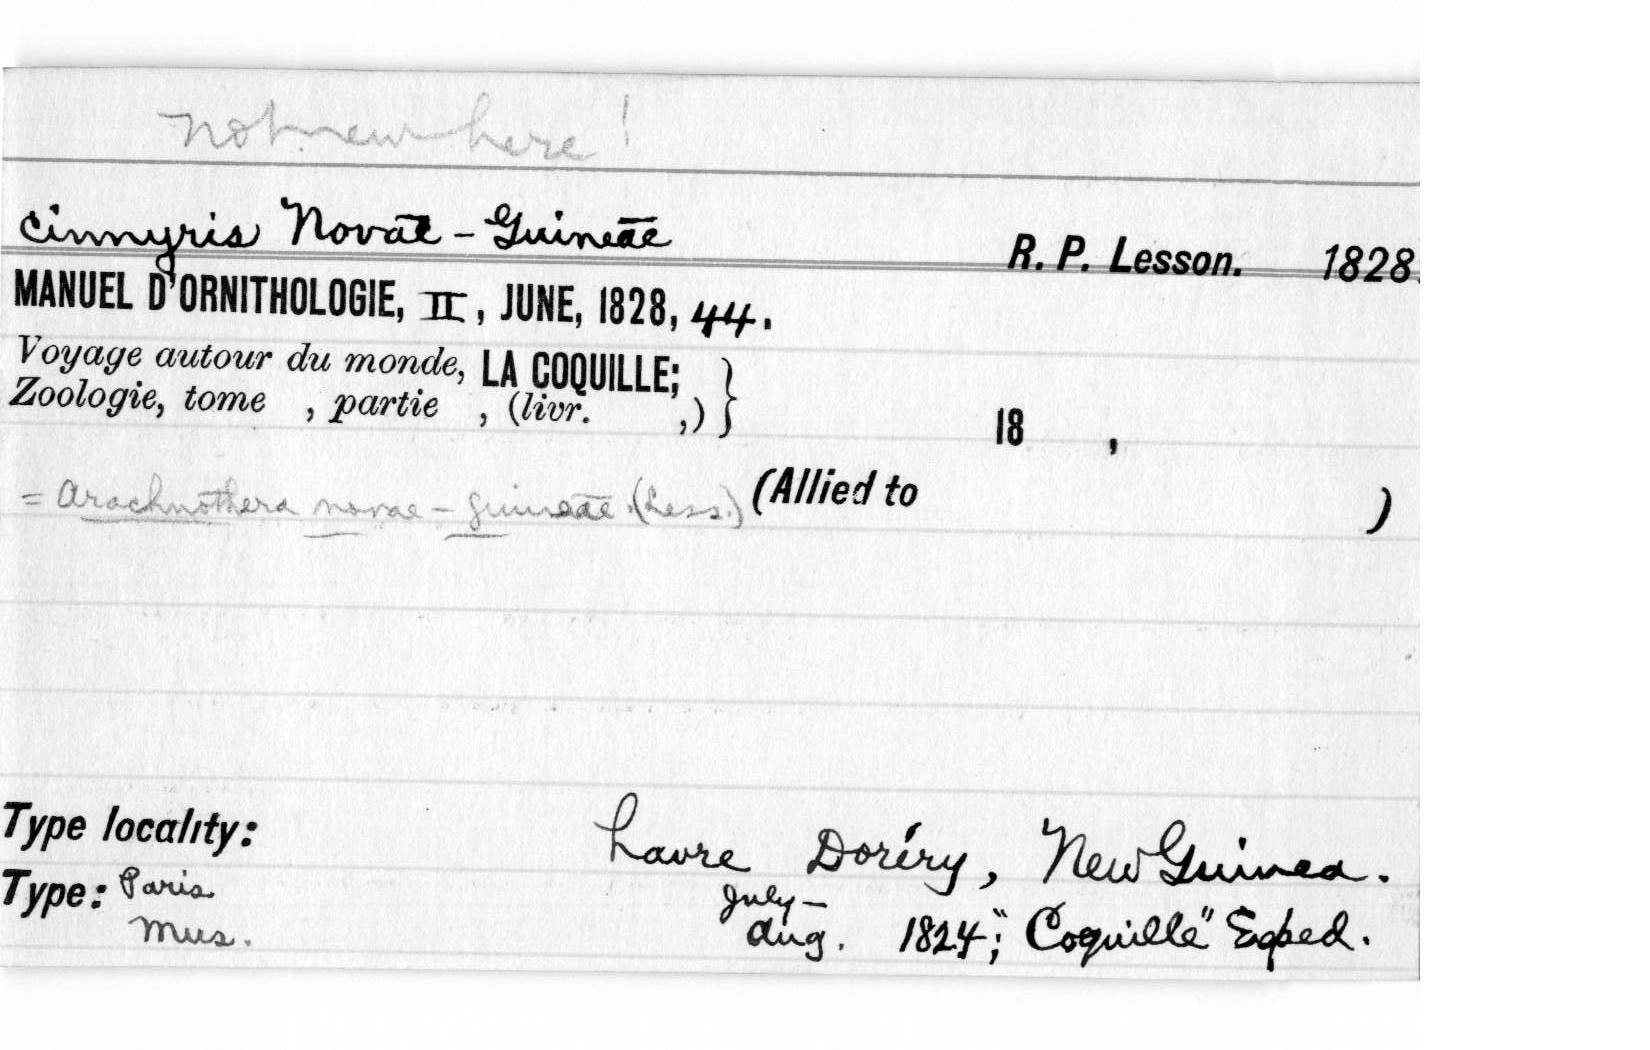 not new here!
Cinnyris Novae-Guineae R. P. Lesson. 1828.
MANUEL D'ORNITHOLOGIE, II, JUNE, 1828, 44.
Voyage autour du monde, LA COQUILLE; }
Zoologie, tome , partie , (livr. ,) 18 ,
= Arachnothera novae-guineae (Less.) (Allied to )
Type locality: havre Doréry, New Guinea.
Type: Paris July-
Mus. Aug. 1824; "Coquille" Exped.